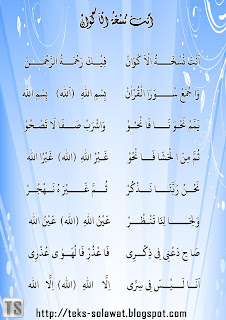 أَنْتَ نُسْخَةُ الْأَكْوَانِ
أَنْتَ نُسْخَةُ الْأَكْوَانْ فِيْكَ رَحْمَةُ الرَّحْمٰنْ
وَاجْمَعْ سُوَرَ الْقُرْآنْ بِسْمِ اللهِ (اللهْ) بِسْمِ اللهْ
يَمِّمْ نَحْوَنَا فَانْحُوْ وَاشْرَبْ صَفَا لَا تَصْحُوْ
ثُمَّ مِنَ الْحَشَا فَانْحُوْ غَيْرُ اللهِ (اللهْ) غَيْرُ اللهْ
نَحْنُ رَبَّنَا نَذْكُرْ ثُمَّ غَيْرَهُ نَهْجُرْ
وَلَنَا تَنْظُرْ عَيْنُ اللهِ (اللهْ) عَيْنُ اللهْ
صَاحِ دَعْنِى فِى ذِكْرِى فَالْهَوَى عُذْرِى
أَنَا لَيْسَ فِى سِرِّى إِلَّا اللهْ (اللهْ) إِلَّا اللهْ
TS http://teks-solawat.blogspot.com